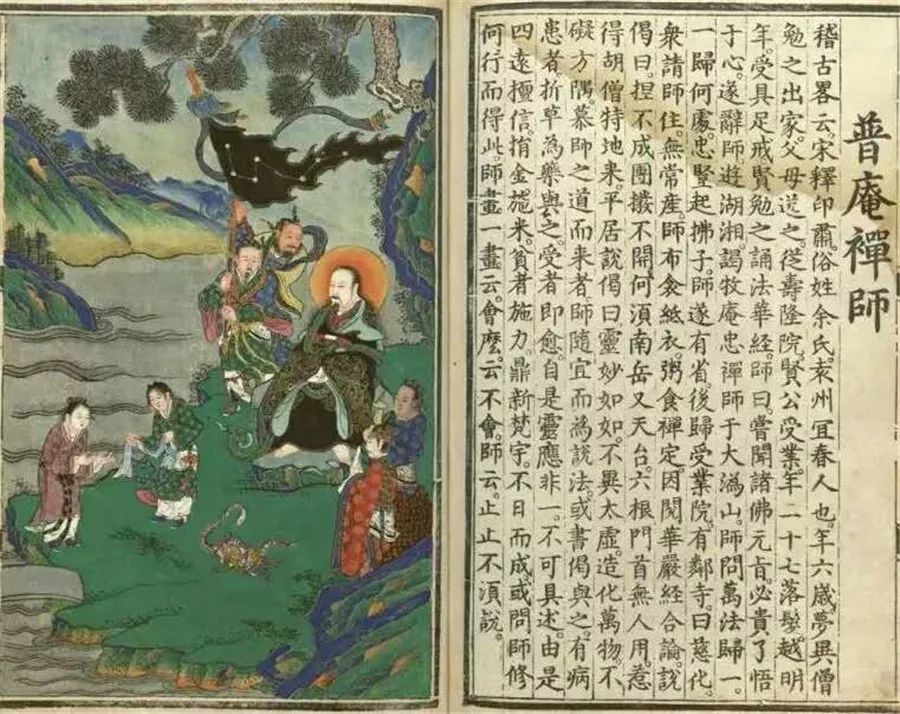 普庵禪師
稽古畧云。宋釋印肅。俗姓余氏。袁州宜春人也。年六歲。夢異僧
勉之出家。父母送之。從壽隆院。賢公受業。年二十七落髮。越明
年。受具足戒。賢勉之誦法華經。師曰。嘗聞諸佛元旨。必貴了悟
于心。遂辭師。遊湖湘。謁牧庵忠禪師于大溈山。師問萬法歸一。
一歸何處。忠竪起拂子。師遂有省。後歸受業院。有鄰寺。曰慈化。
衆請師住。無常産。師布衾紙衣。粥食禪定。因閱華嚴經合論。說
偈曰。捏不成團撥不開。何湏南岳又天台。六根門首無人用。惹
得胡僧特地来。平居說偈曰。靈妙如如。不異太虛。造化萬物。不
礙方隅。慕師之道而来者。師隨宜而為說法。或書偈與之。有病
患者。折草為藥與之。受者即愈。自是靈應非一。不可具述。由是
四遠擅信。捐金施米。貧者施力。鼎新梵宇。不日而成。或問師修
何行而得此。師畫一畫云。會麽。云不會。師云。止止不湏說。